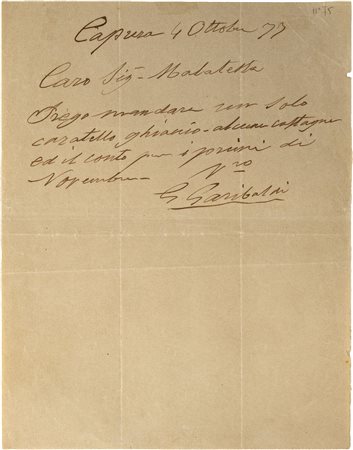 n° 75
Caprera 4 Ottobre 77
Caro Sigr Malatesta
Prego mandare un solo
caratello ghiaccio - alcune castagne
ed il conto per i primi di
Novembre -
Vro
G Garibaldi